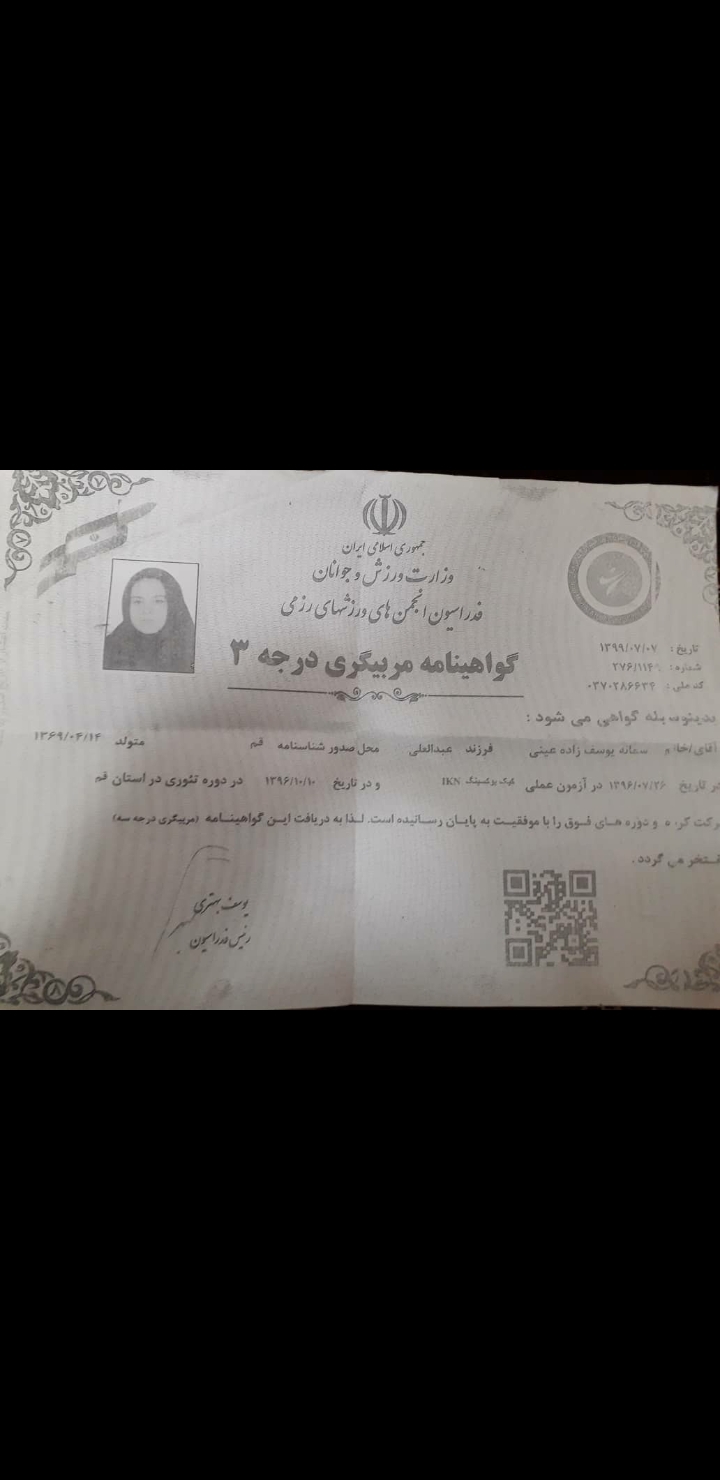 جمهوری اسلامی ایران
وزارت ورزش و جوانان
فدراسیون انجمن های ورزشهای رزمی
گواهینامه مربیگری درجه ۳
تاریخ : ۱۳۹۹/۰۷/۰۷
شماره : ۲۷۶/۱۱۴
کد ملی :
بدینوسیله گواهی می شود :
آقای/خانم سمانه یوسف زاده عینی فرزند عبدالعلی محل صدور شناسنامه قم متولد ۱۳۶۹/۰۴/۱۴
در تاریخ ۱۳۹۶/۰۷/۲۶ در آزمون عملی کیک بوکسینگ IKN و در تاریخ ۱۳۹۶/۱۰/۱۰ در دوره تئوری در استان قم
شرکت کرده و دوره های فوق را با موفقیت به پایان رسانیده است. لذا به دریافت این گواهینامه (مربیگری درجه سه)
مفتخر می گردد .
یوسف بهتری
رئیس فدراسیون